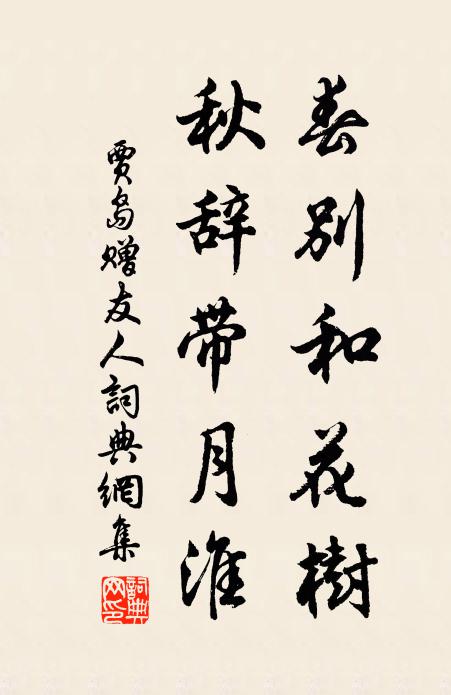 春别和花樹
秋辞带月淮
賈島贈友人詞典網集
詞典網印